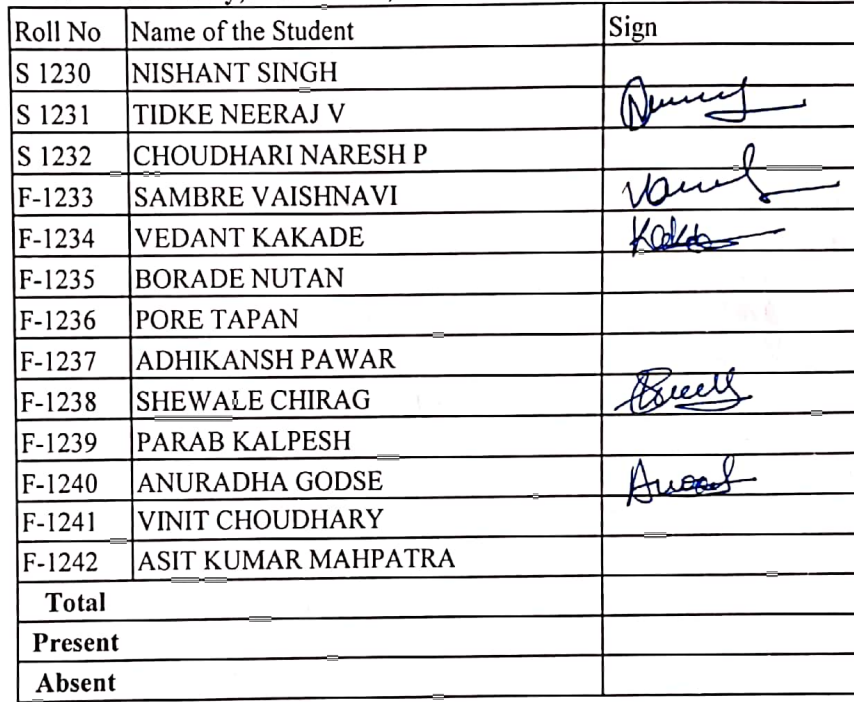 Roll No Name of the Student Sign
S 1230 NISHANT SINGH
S 1231 TIDKE NEERAJ V
S 1232 CHOUDHARI NARESH P
F-1233 SAMBRE VAISHNAVI
F-1234 VEDANT KAKADE
F-1235 BORADE NUTAN
F-1236 PORE TAPAN
F-1237 ADHIKANSH PAWAR
F-1238 SHEWALE CHIRAG
F-1239 PARAB KALPESH
F-1240 ANURADHA GODSE
F-1241 VINIT CHOUDHARY
F-1242 ASIT KUMAR MAHPATRA
Total
Present
Absent